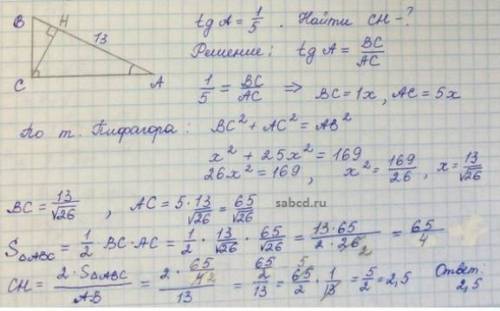 B H 13
C A
tg A = 1/5 . Найти CH - ?
Решение: tg A = BC/AC
1/5 = BC/AC ⇒ BC = 1x, AC = 5x
По т. Пифагора: BC² + AC² = AB²
x² + 25x² = 169
26x² = 169, x² = 169/26, x = 13/√26
BC = 13/√26 , AC = 5·13/√26 = 65/√26
sabcd.ru
S△ABC = 1/2 BC·AC = 1/2 · 13/√26 · 65/√26 = 13·65/2·26 2 = 65/4
CH = 2·S△ABC/AB = 2·65/4 2/13 = 65/2/13 = 65 5/2 · 1/13 = 5/2 = 2,5 Ответ: 2,5